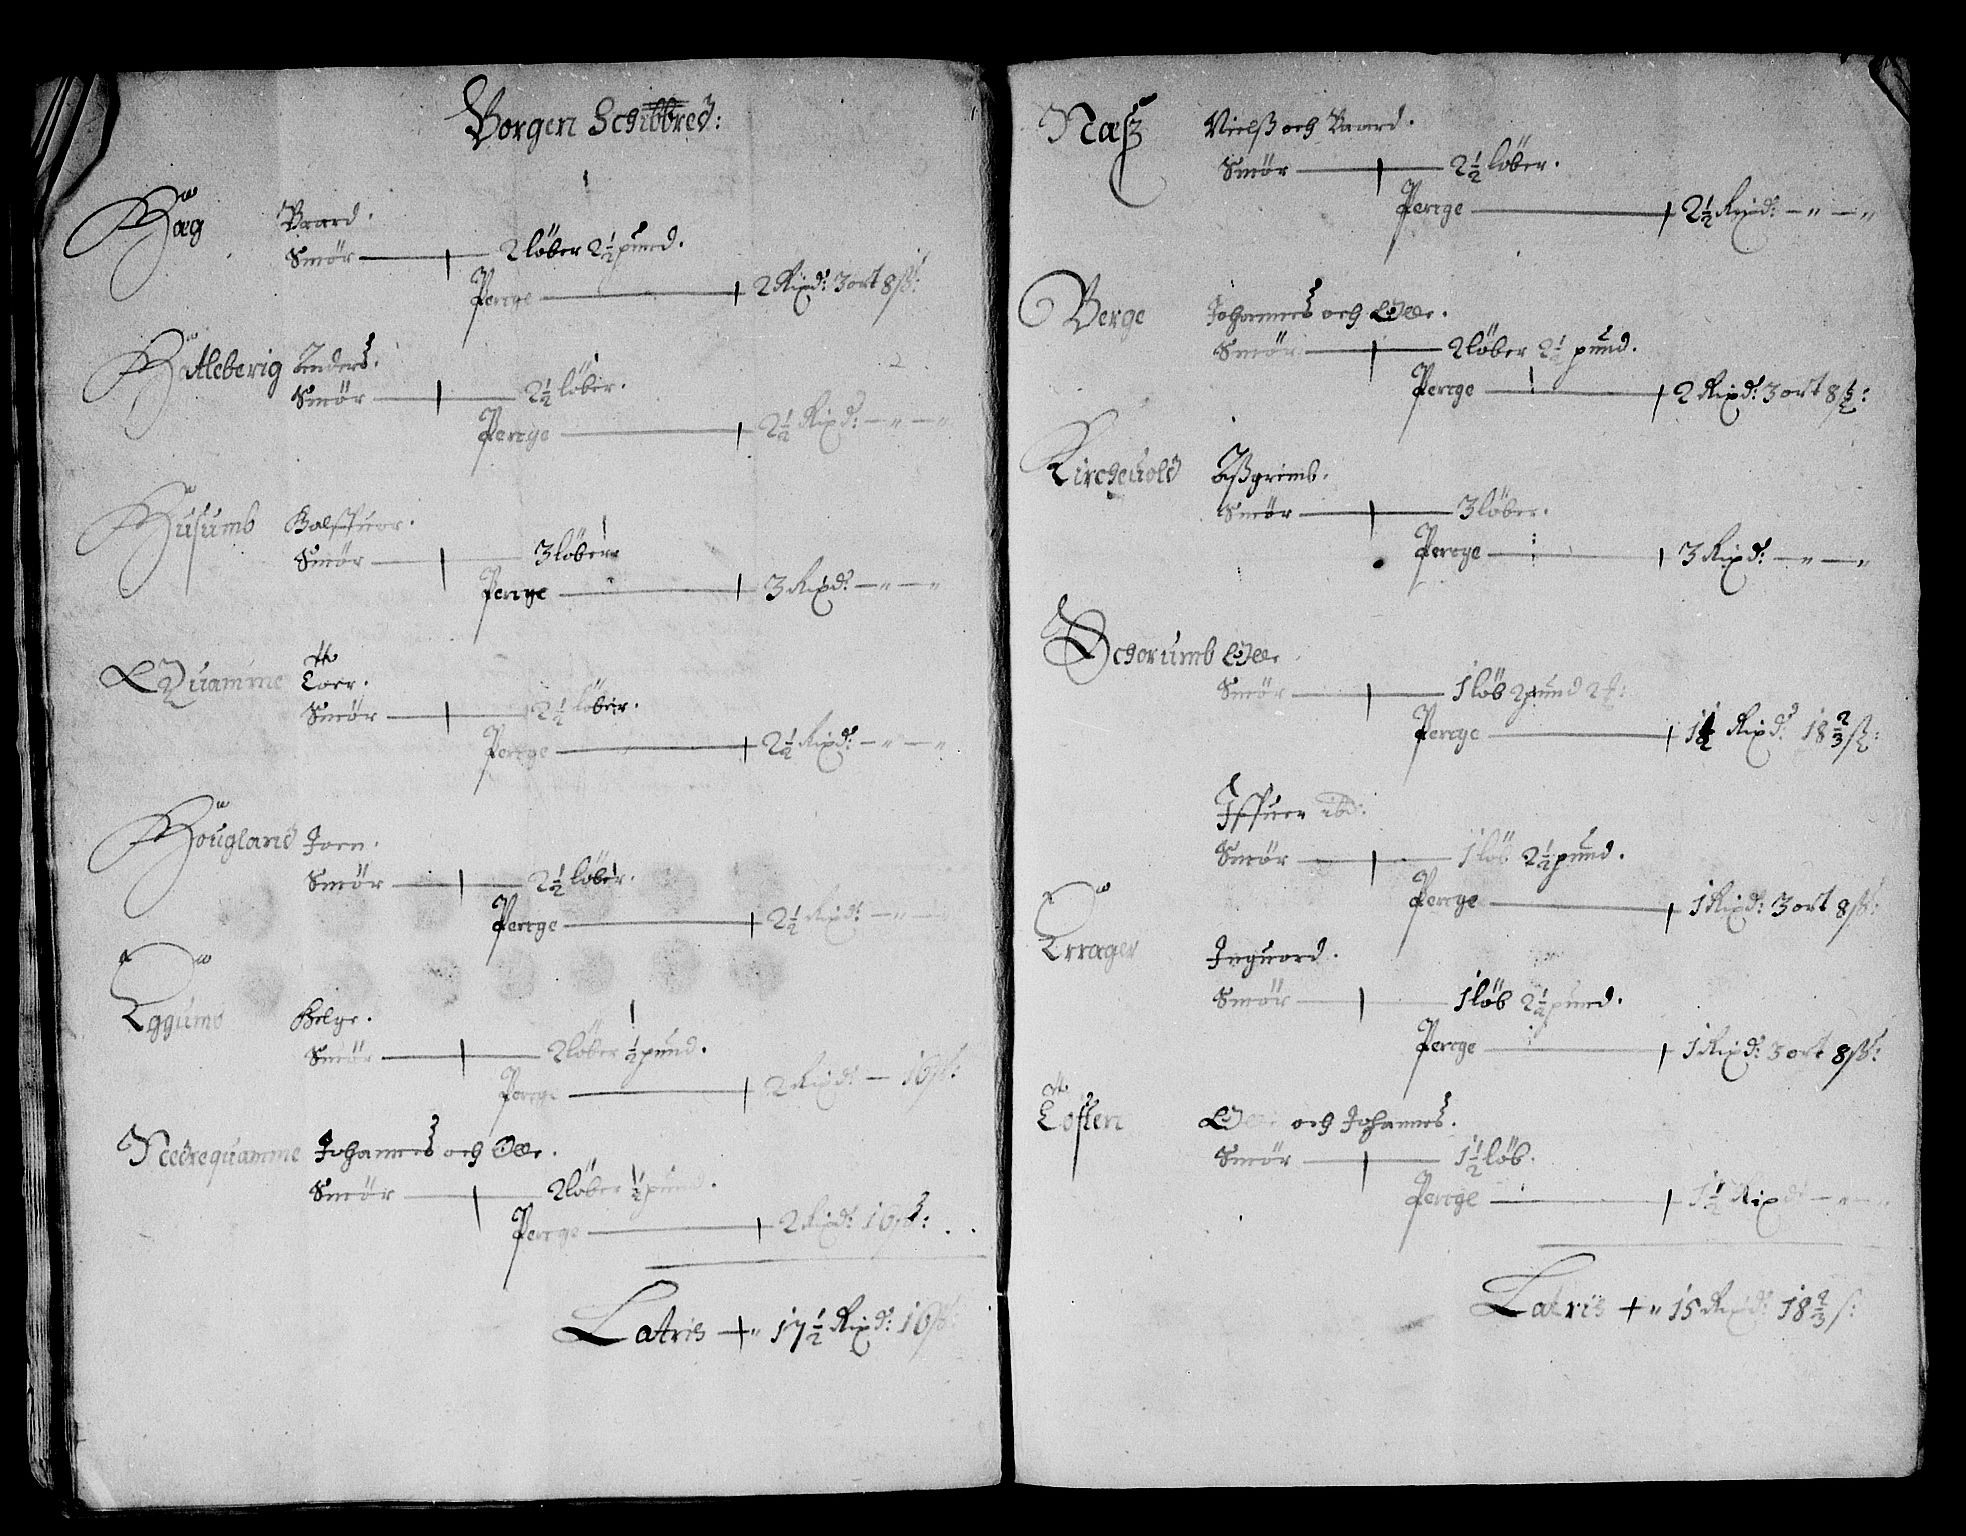 Borgen Schibbred:
Hæg Baard.
Smör 2 löber 2½ pund.
Penge 2 Rixd: 3 ort 8 ß:
Hatleberig Anders.
Smör 2½ löber.
Penge 2½ Rixd: — " — "
Husumb Halstuor.
Smör 3 löber
Penge 3 Rixd: — " — "
Quamme Toer.
Smör 2½ löber.
Penge 2½ Rixd: — " — "
Hougland Joen.
Smör 2½ löber.
Penge 2½ Rixd: — " —
Eggumb Helge.
Smör 2 löber ½ pund.
Penge 2 Rixd: — 16 ß:
Nedrequamme Johannes och Olle.
Smör 2 löber ½ pund.
Penge 2 Rixd: 16 ß:
Latris " 17½ Rixd: 16 ß:
Næsz Nielß och Baard.
Smör 2½ löber.
Penge 2½ Rixd: — " — "
Berge Johannes och Olle.
Smör 2 löber 2½ pund.
Penge 2 Rixd: 3 ort 8 ß:
Kircheuold Aßgrimb.
Smör 3 löber.
Penge 3 Rixd: — " — "
Schorumb Olle.
Smör 1 löb 2 pund 2
Penge 1½ Rixd: 18⅔ ß:
Iffuer ibd:
Smör 1 löb 2½ pund.
Penge 1 Rixd: 3 ort 8 ß:
Errager Inguord.
Smör 1 löb 2½ pund.
Penge 1 Rixd: 3 ort 8 ß:
Tosten Olle och Johannes.
Smör 1½ löb.
Penge 1½ Rixd: — " — "
Latris " 15 Rixd: 18⅔ ß: